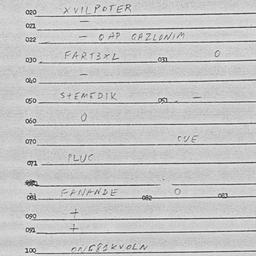 020 XVILPOTER
021 —
022 — OAP OAZLONIM
030 FART3XL 031 O
040 —
050 STEMEDIK 051 —
060 O
070 OVE
071 PLUG
081 FANANDE 082 O 083
090 +
091 +
100